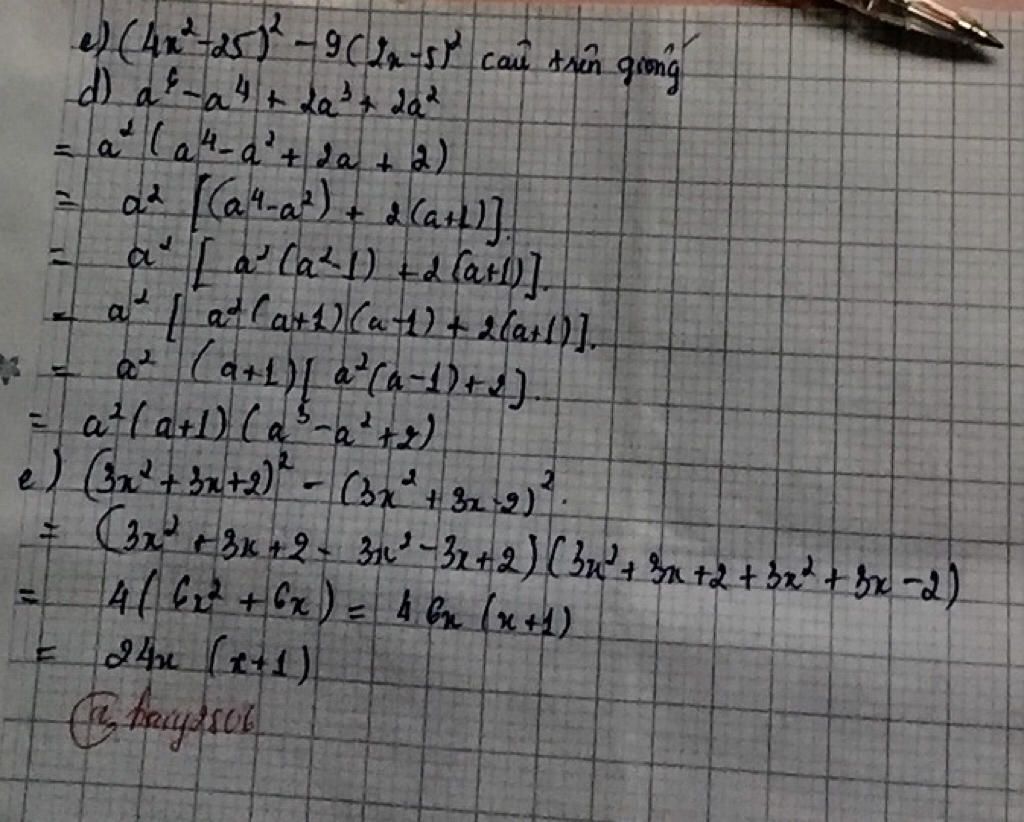 c) (4x² - 25)² - 9(2x - 5)² câu trên giống
d) a⁶ - a⁴ + 2a³ + 2a²
= a² (a⁴ - a² + 2a + 2)
= a² [(a⁴ - a²) + 2(a+1)].
= a² [a² (a² - 1) + 2(a+1)].
= a² [a² (a+1)(a-1) + 2(a+1)].
= a² (a+1) [a²(a-1) + 2].
= a² (a+1) (a³ - a² + 2)
e) (3x² + 3x + 2)² - (3x² + 3x - 2)².
= (3x² + 3x + 2 - 3x² - 3x + 2) (3x² + 3x + 2 + 3x² + 3x - 2)
= 4(6x² + 6x) = 4 6x (x+1)
= 24x (x+1)